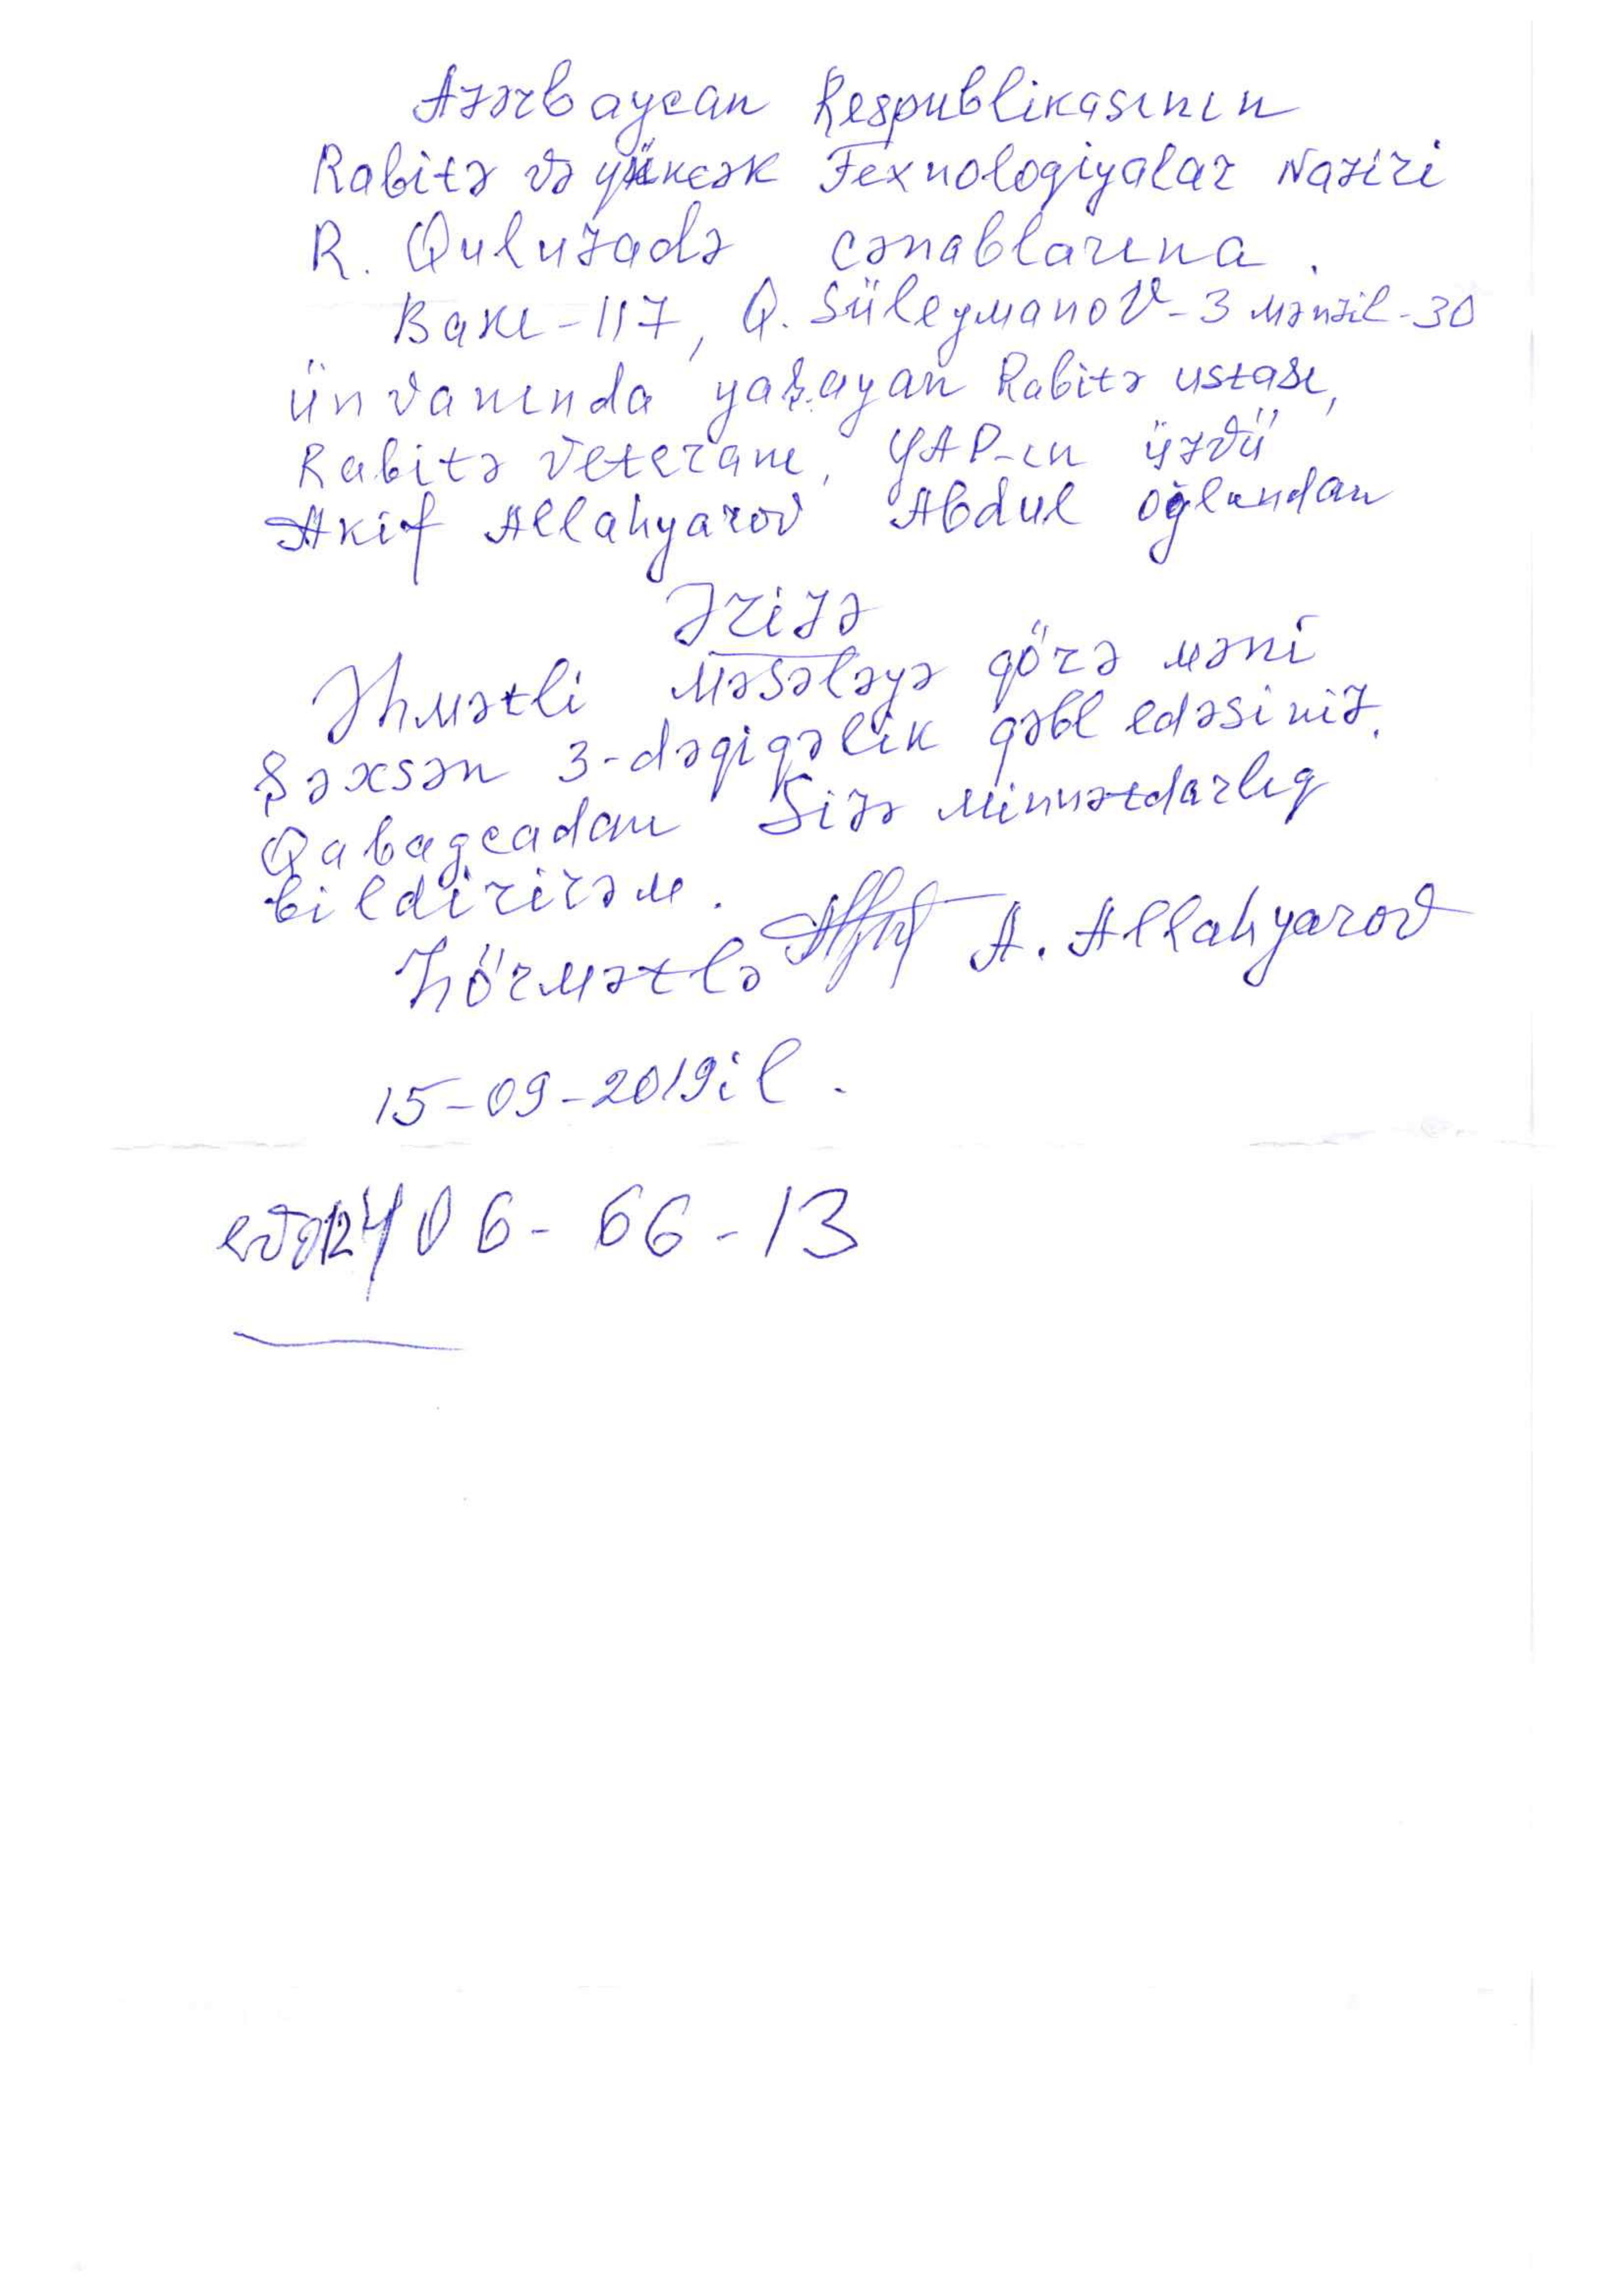 Azərbaycan Respublikasının
Rabitə və yüksək Texnologiyalar Naziri
R. Quluzadə cənablarına.
Bakı-117, Q. Süleymanov-3 mənzil-30
ünvanında yaşayan Rabitə ustası,
Rabitə veteranı, YAP-ın üzvü
Akif Allahyarov Abdul oğlundan
Ərizə
Əhmətli məsələyə görə məni
Şəxsən 3-dəqiqəlik qəbl edəsiniz.
Qabagcadan Sizə minnətdarlıg
bildirirəm.
Hörmətlə A. Allahyarov
15-09-2019il.
ev 012 406-66-13